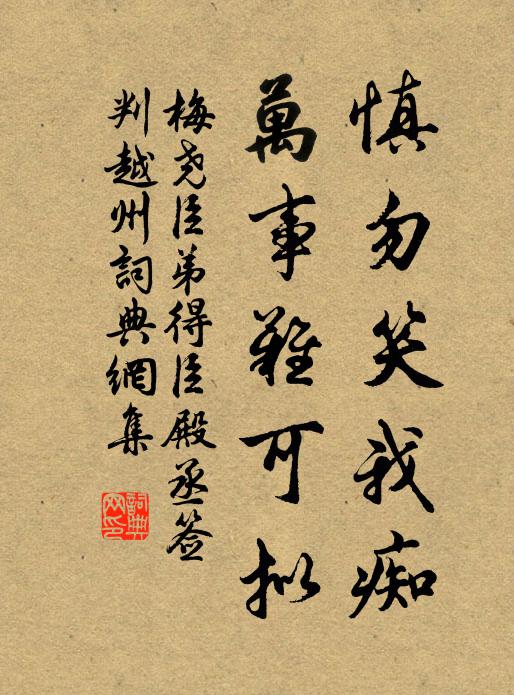 慎勿笑我痴
萬事難可拟
梅尧臣弟得臣殿丞签
判越州詞典網集
詞典网印